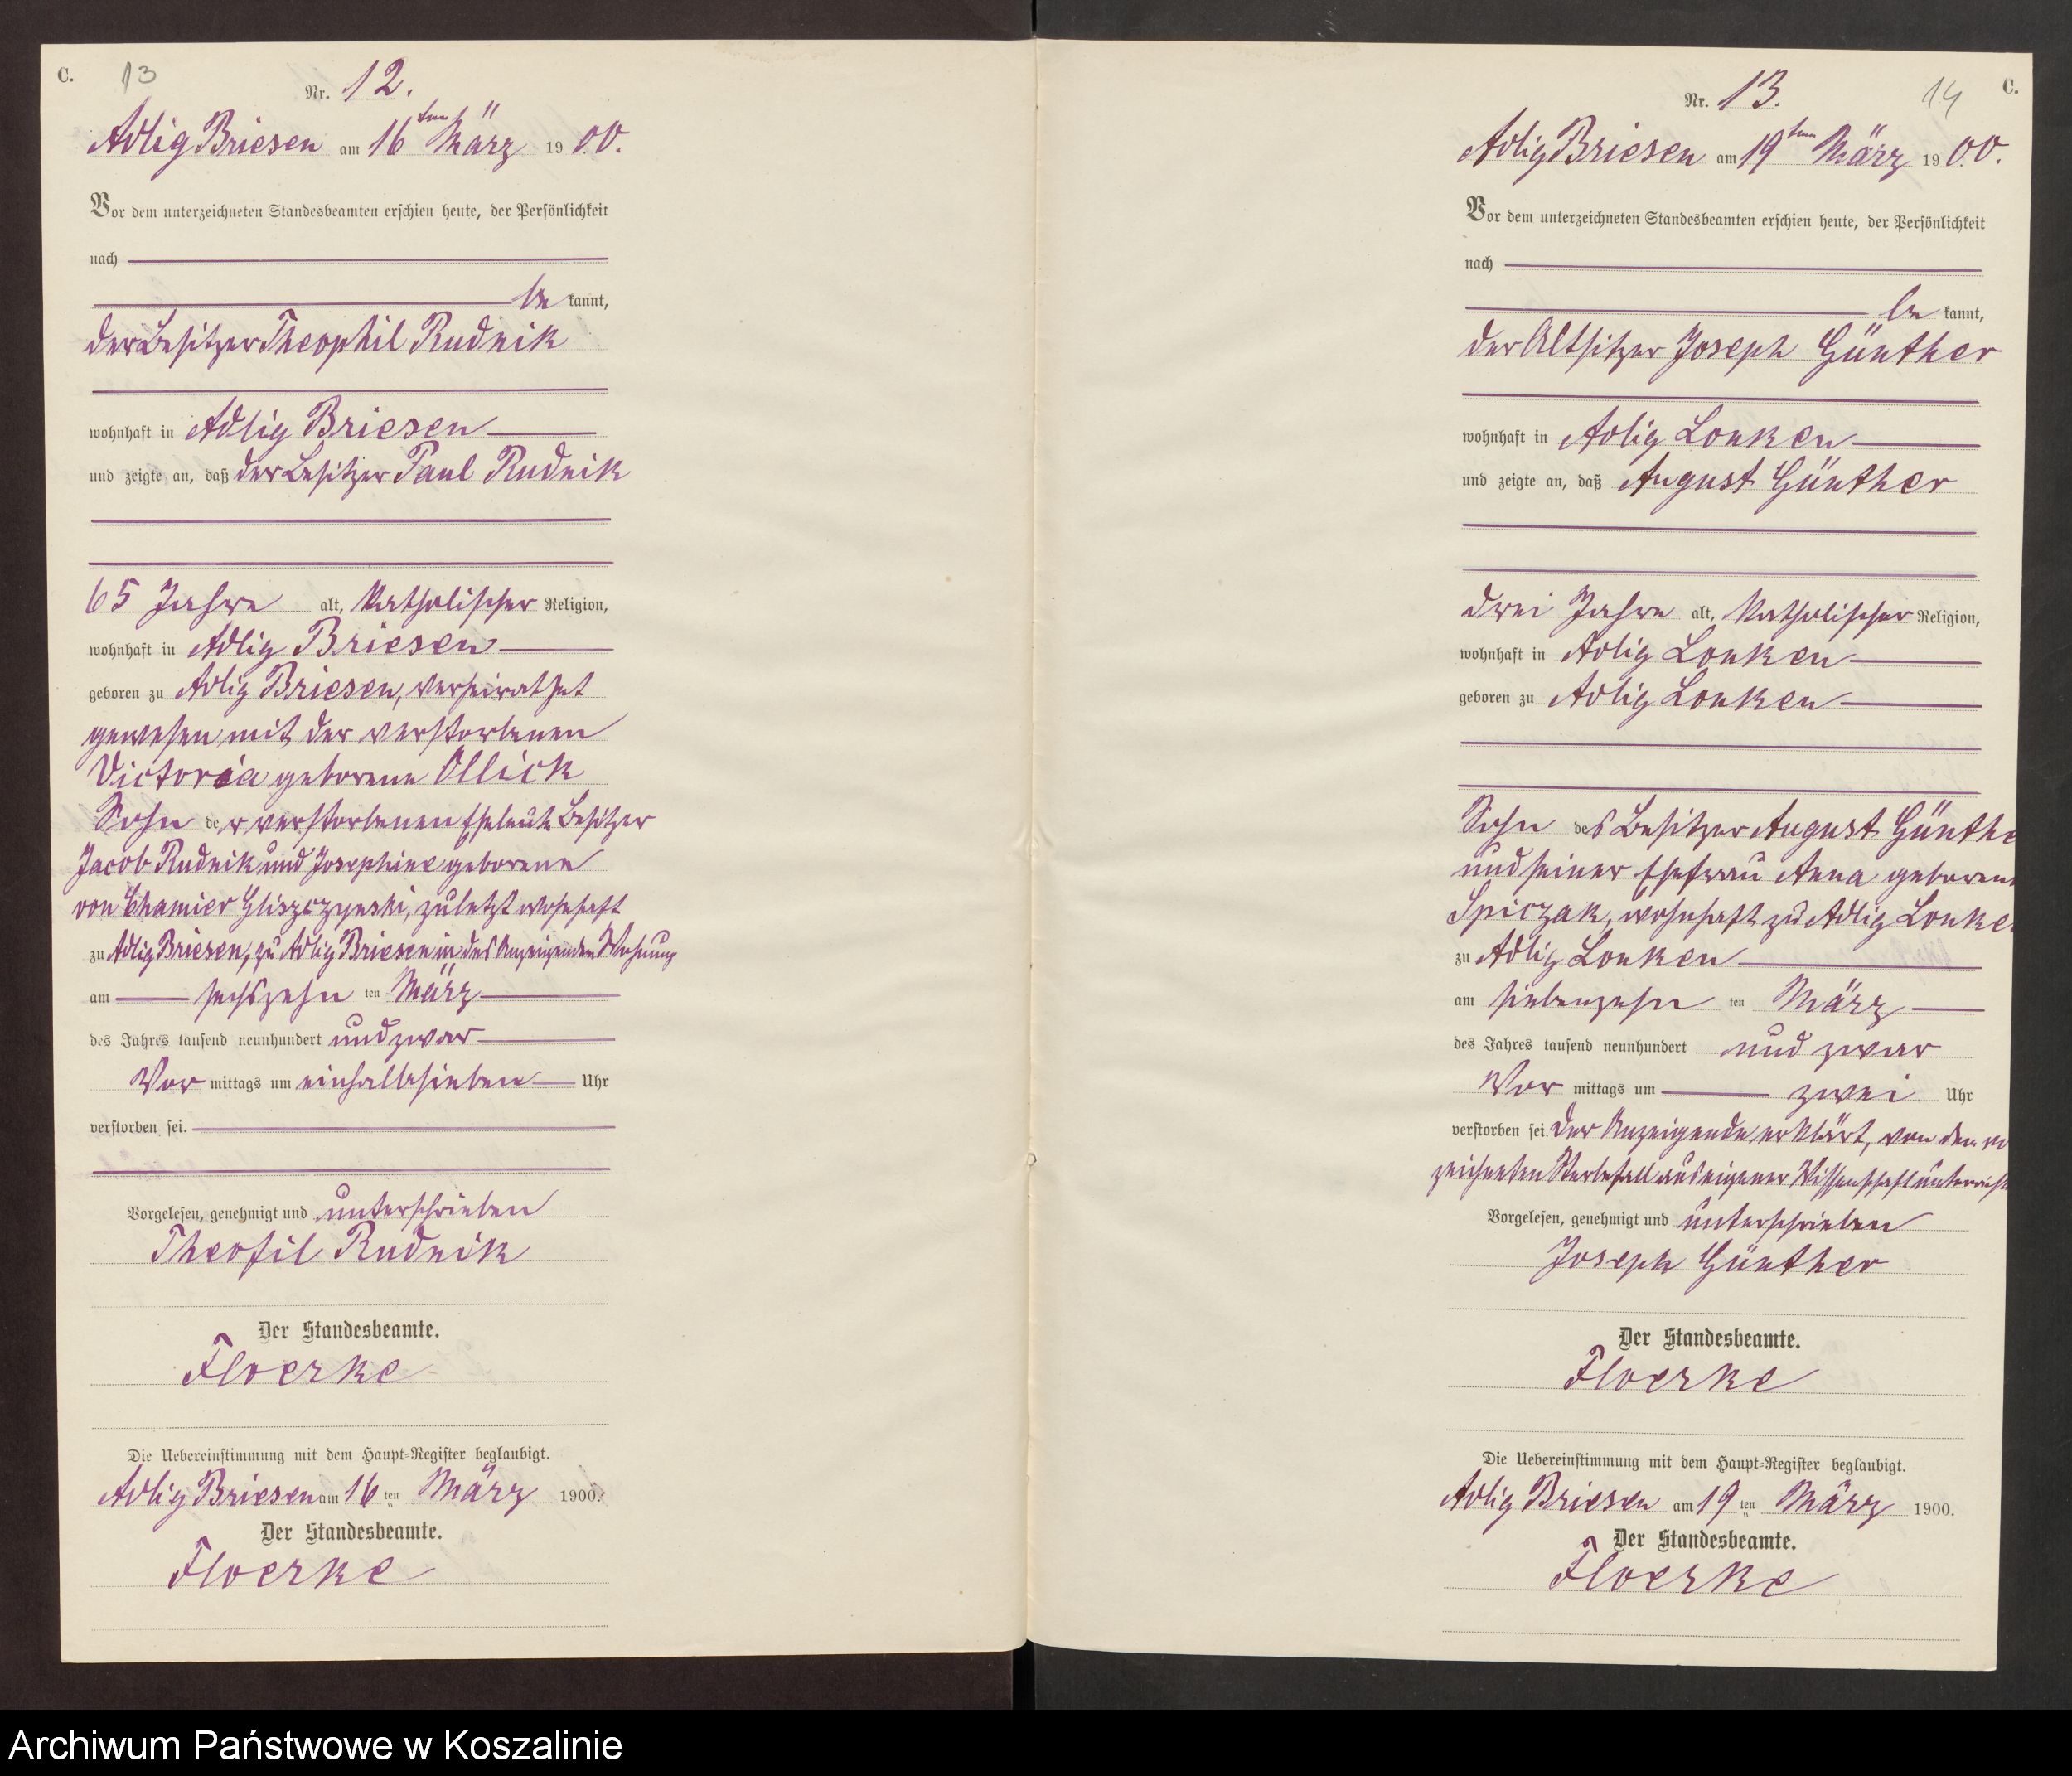 C. 13
Nr. 12.
Adlig Briesen am 16ten März 1900.
Vor dem unterzeichneten Standesbeamten erschien heute, der Persönlichkeit
nach
be kannt,
der Besitzer Theophil Rudnik
wohnhaft in Adlig Briesen
und zeigte an, daß der Besitzer Paul Rudnik
65 Jahre alt, katholischer Religion,
wohnhaft in Adlig Briesen
geboren zu Adlig Briesen, verheirathet
gewesen mit der verstorbenen
Victoria geborene Ollick
Sohn der verstorbenen Eheleute Besitzer
Jacob Rudnik und Josephine geborene
von Chamier Gliszczynski, zuletzt wohnhaft
zu Adlig Briesen, zu Adlig Briesen in des Anzeigenden Wohnung
am sechszehn ten März
des Jahres tausend neunhundert und zwar
Vor mittags um einhalbsieben Uhr
verstorben sei.
Vorgelesen, genehmigt und unterschrieben
Theofil Rudnik
Der Standesbeamte.
Floerke
Die Uebereinstimmung mit dem Haupt-Register beglaubigt.
Adlig Briesen am 16 ten März 1900.
Der Standesbeamte.
Floerke
14 C.
Nr. 13.
Adlig Briesen am 19ten März 1900.
Vor dem unterzeichneten Standesbeamten erschien heute, der Persönlichkeit
nach
be kannt,
der Altsitzer Joseph Günther
wohnhaft in Adlig Lonken
und zeigte an, daß August Günther
drei Jahre alt, katholischer Religion,
wohnhaft in Adlig Lonken
geboren zu Adlig Lonken
Sohn des Besitzer August Günthe
und seiner Ehefrau Anna geboren
Spiczak, wohnhaft zu Adlig Lonke
zu Adlig Lonken
am siebenzehn ten März
des Jahres tausend neunhundert und zwar
Vor mittags um zwei Uhr
verstorben sei. Der Anzeigende erklärt, von dem
zeichneten Sterbefall aus eigener Wissenschaft unterrich
Vorgelesen, genehmigt und unterschrieben
Joseph Günther
Der Standesbeamte.
Floerke
Die Uebereinstimmung mit dem Haupt-Register beglaubigt.
Adlig Briesen am 19 ten März 1900.
Der Standesbeamte.
Floerke
Archiwum Państwowe w Koszalinie